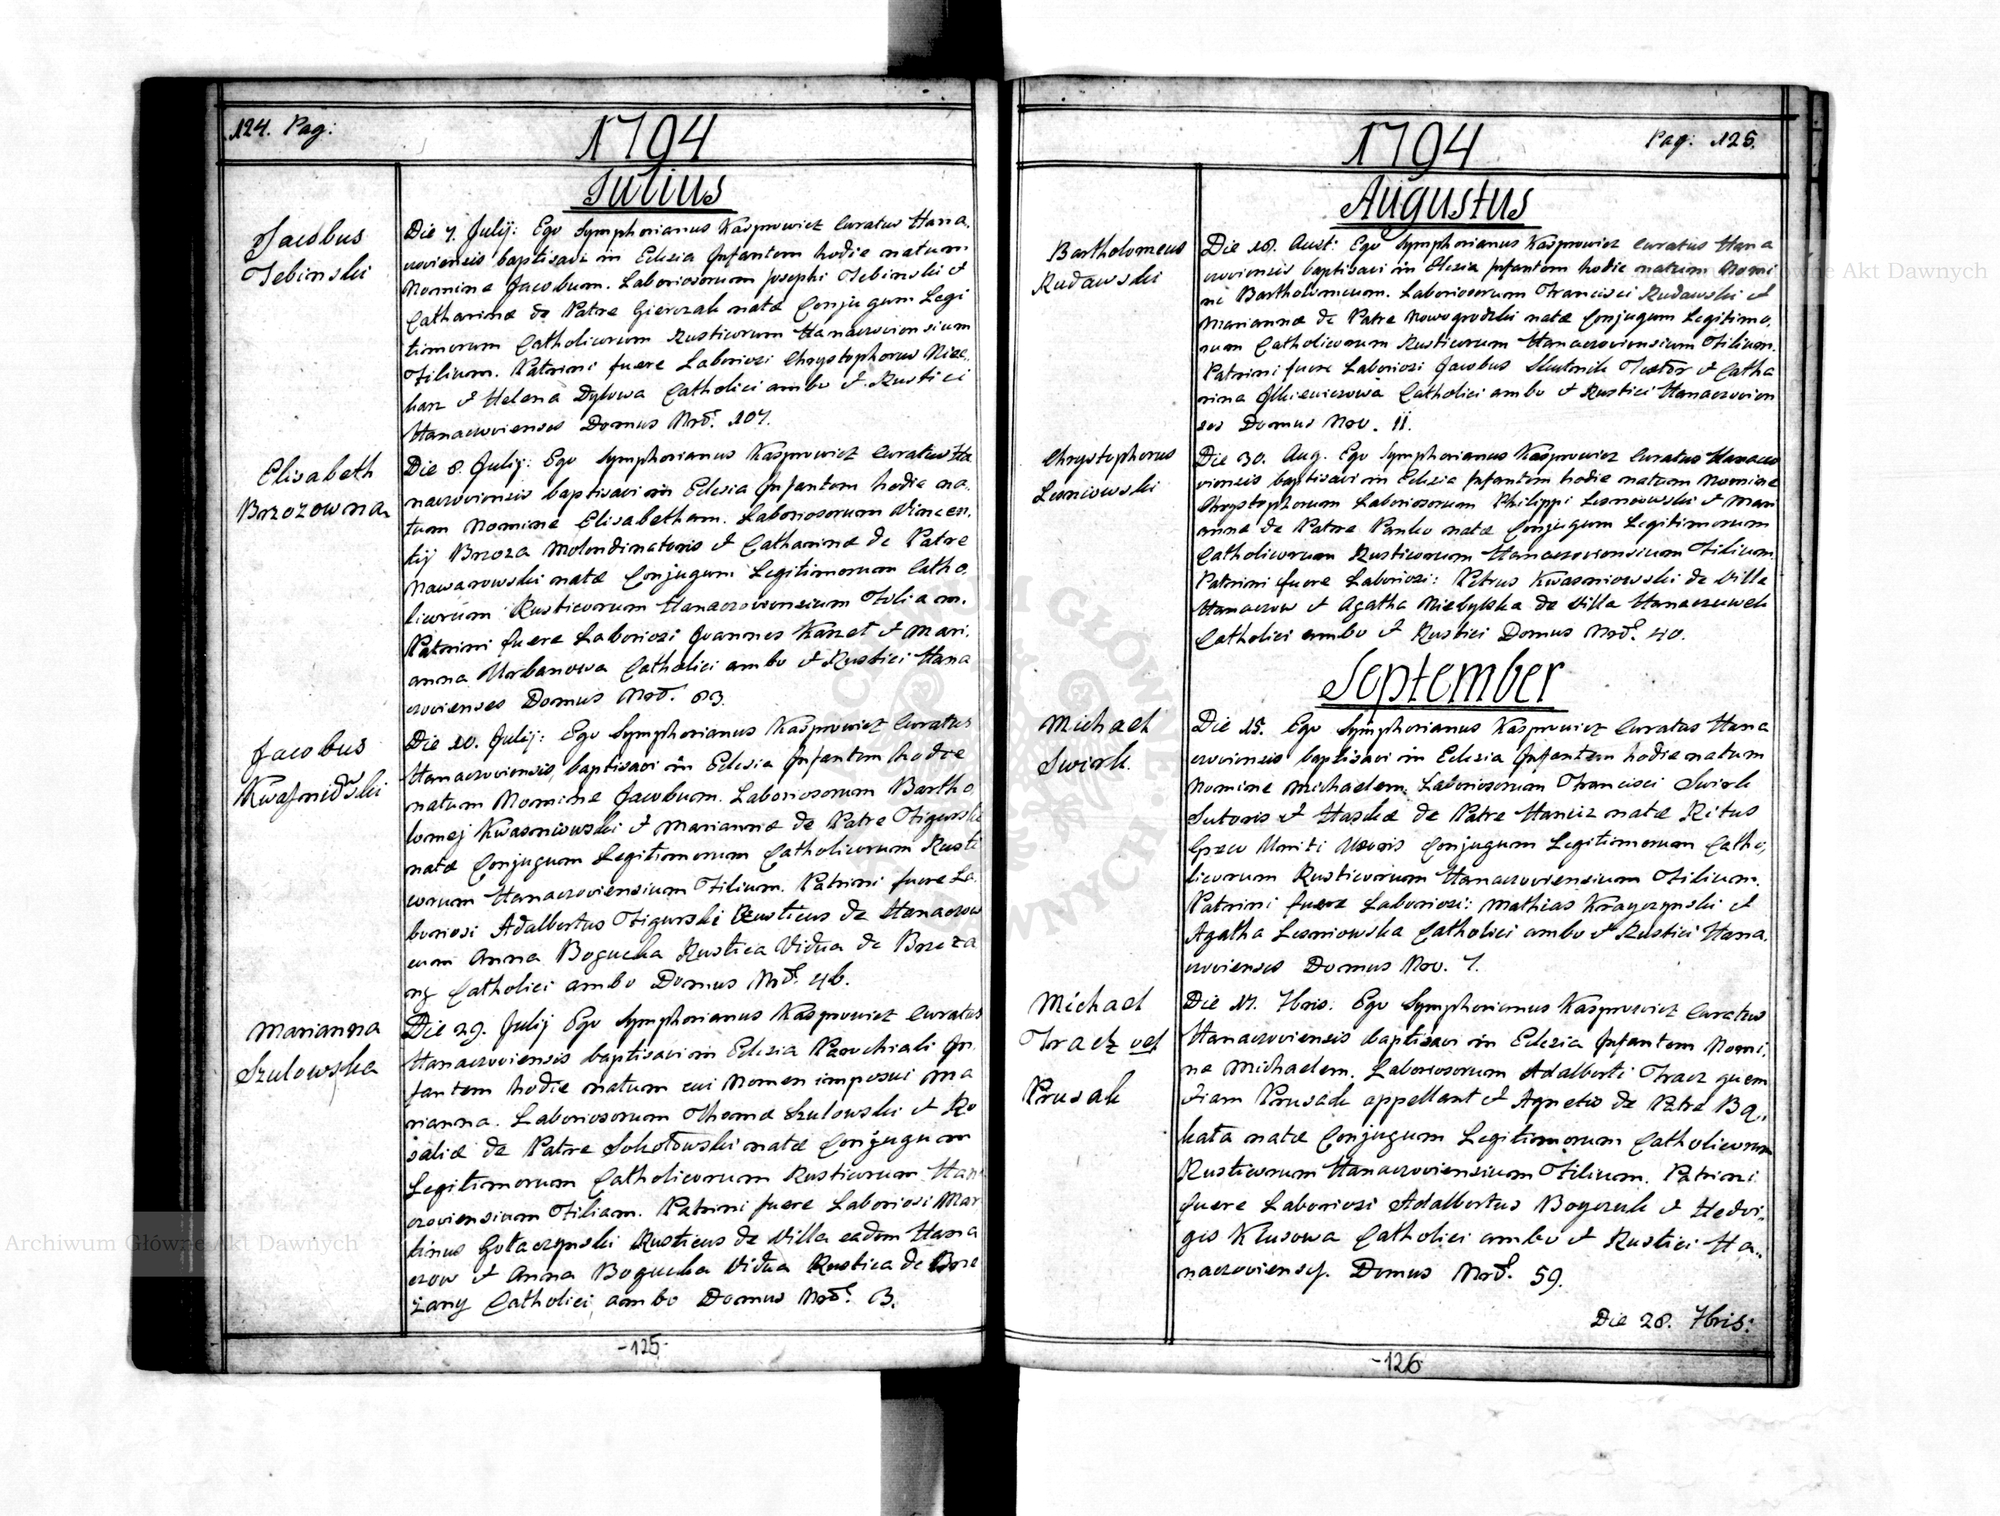 124. Pag:
1794
Julius
Jacobus
Tebinski
Die 7. Julij: Ego Symphorianus Kasprowicz Curatus Hana,
croviensis baptisavi in Eclesia Infantem hodie natum
Nomine Jacobum. Laboriosorum Josephi Tebinski et
Catharinæ de Patre Gierczak natæ Conjugum Legi
timorum Catholicorum Rusticorum Hanacroviensium
Filium. Patrini fuere Laboriosi Chrystophorus
karz et Helena Dylowa Catholici ambo et Rustici
Hanacrovienses Domus Nrō. 107.
Elisabeth
Brzozowna
Die 8. Julij: Ego Symphorianus Kasprowicz Curatus Ha
nacroviensis baptisavi in Eclesia Infantem hodie na,
tum Nomine Elisabetham. Laboriosorum Vincen,
tij Brzoza Molendinatoris et Catharinæ de Patre
Nawarowski natæ Conjugum Legitimorum Catho,
licorum Rusticorum Hanacroviensium Filiam.
Patrini fuere Laboriosi Joannes Karzet et Mari,
anna Urbanowa Catholici ambo et Rustici Hana
crovienses Domus Nrō. 83.
Jacobus
Kwasniowski
Die 10. Julij: Ego Symphorianus Kasprowicz Curatus
Hanacroviensis baptisavi in Eclesia Infantem hodie
natum Nomine Jacobum. Laboriosorum Bartho
lomej Kwasniowski et Mariannæ de Patre Figurski
natæ Conjugum Legitimorum Catholicorum Rusti
corum Hanacroviensium Filium. Patrini fuere La
boriosi Adalbertus Figurski Rusticus de Hanaczow
cum Anna Bogucka Rustica Vidua de Brzeza
ny Catholici ambo Domus Nrō. 46.
Marianna
Szulowska
Die 29. Julij Ego Symphorianus Kasprowicz Curatus
Hanacroviensis baptisavi in Eclesia Parochiali In
fantem hodie natum cui Nomen imposui Ma
rianna. Laboriosorum Thomæ Szulowski et Ro
saliæ de Patre Sokołowski natæ Conjugum
Legitimorum Catholicorum Rusticorum Han
croviensium Filiam. Patrini fuere Laboriosi Mar
tinus Gołaczynski Rusticus de Villa eadem Hana
czow et Anna Bogucka Vidua Rustica de Brze
żany Catholici ambo Domus Nrō. 13.
-125-
1794
Pag: 125.
Augustus
Bartholomeus
Rudawski
Die 18. Aust: Ego Symphorianus Kasprowicz Curatus Hana
croviensis baptisavi in Elesia Infantem hodie natum Nomi
ne Bartholomeum. Laboriosorum Francisci Rudawski et
Mariannæ de Patre Nowogrodzki natæ Conjugum Legitimo,
rum Catholicorum Rusticorum Hanacroviensium Filium.
Patrini fuere Laboriosi Jacobus Skotnik Textor et Catha
rina Catholici ambo et Rustici Hanacrovien
ses Domus Nrō. 11.
Chrystophorus
Lesniowski
Die 30. Aug. Ego Symphorianus Kasprowicz Curatus Hanacro
viensis baptisavi in Eclesia Infantem hodie natum Nomine
Chrystophorum Laboriosorum Philippi Lesniowski et Mari
annæ de Patre Panko natæ Conjugum Legitimorum
Catholicorum Rusticorum Hanacroviensium Filium.
Patrini fuere Laboriosi: Petrus Kwasniowski de Villa
Hanaczow et Agatha Niebylska de Villa Hanaczuwek
Catholici ambo et Rustici Domus Nrō. 40.
September
Michael
Swirk.
Die 15. Ego Symphorianus Kasprowicz Curatus Hana
croviensis baptisavi in Eclesia Infantem hodie natum
Nomine Michaelem. Laboriosorum Francisci Swirk
Sutoris et Haskæ de Patre Haniz natæ Ritus
Græco Uniti Uxoris Conjugum Legitimorum Catho,
licorum Rusticorum Hanacroviensium Filium.
Patrini fuere Laboriosi: Mathias Krayczynski et
Agatha Lesniowska Catholici ambo et Rustici Hana,
crovienses Domus Nro. 7.
Michael
Tracz vel
Prusak
Die 17. 7bris. Ego Symphorianus Kasprowicz Curatus
Hanacroviensis baptisavi in Eclesia Infantem Nomi,
ne Michaelem. Laboriosorum Adalberti Tracz quem
etiam Prusack appellant et Agnetis de Patre Ba,,
kata natæ Conjugum Legitimorum Catholicorum
Rusticorum Hanacroviensium Filium. Patrini
fuere Laboriosi Adalbertus Boyczuk et Hedvi,,
gis Klusowa Catholici ambo et Rustici Ha,,
nacroviensy. Domus Nrō. 59.
Die 28. 7bris:
-126-
Archiwum Główne Akt Dawnych